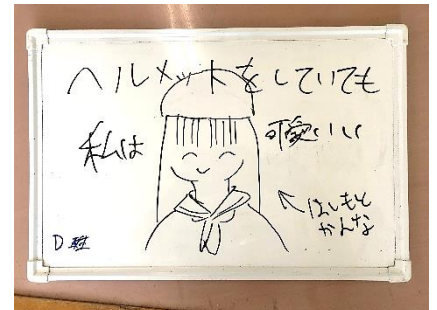 ヘルメットをしていても
私は
可愛いい
はしもと
かんな
D 班